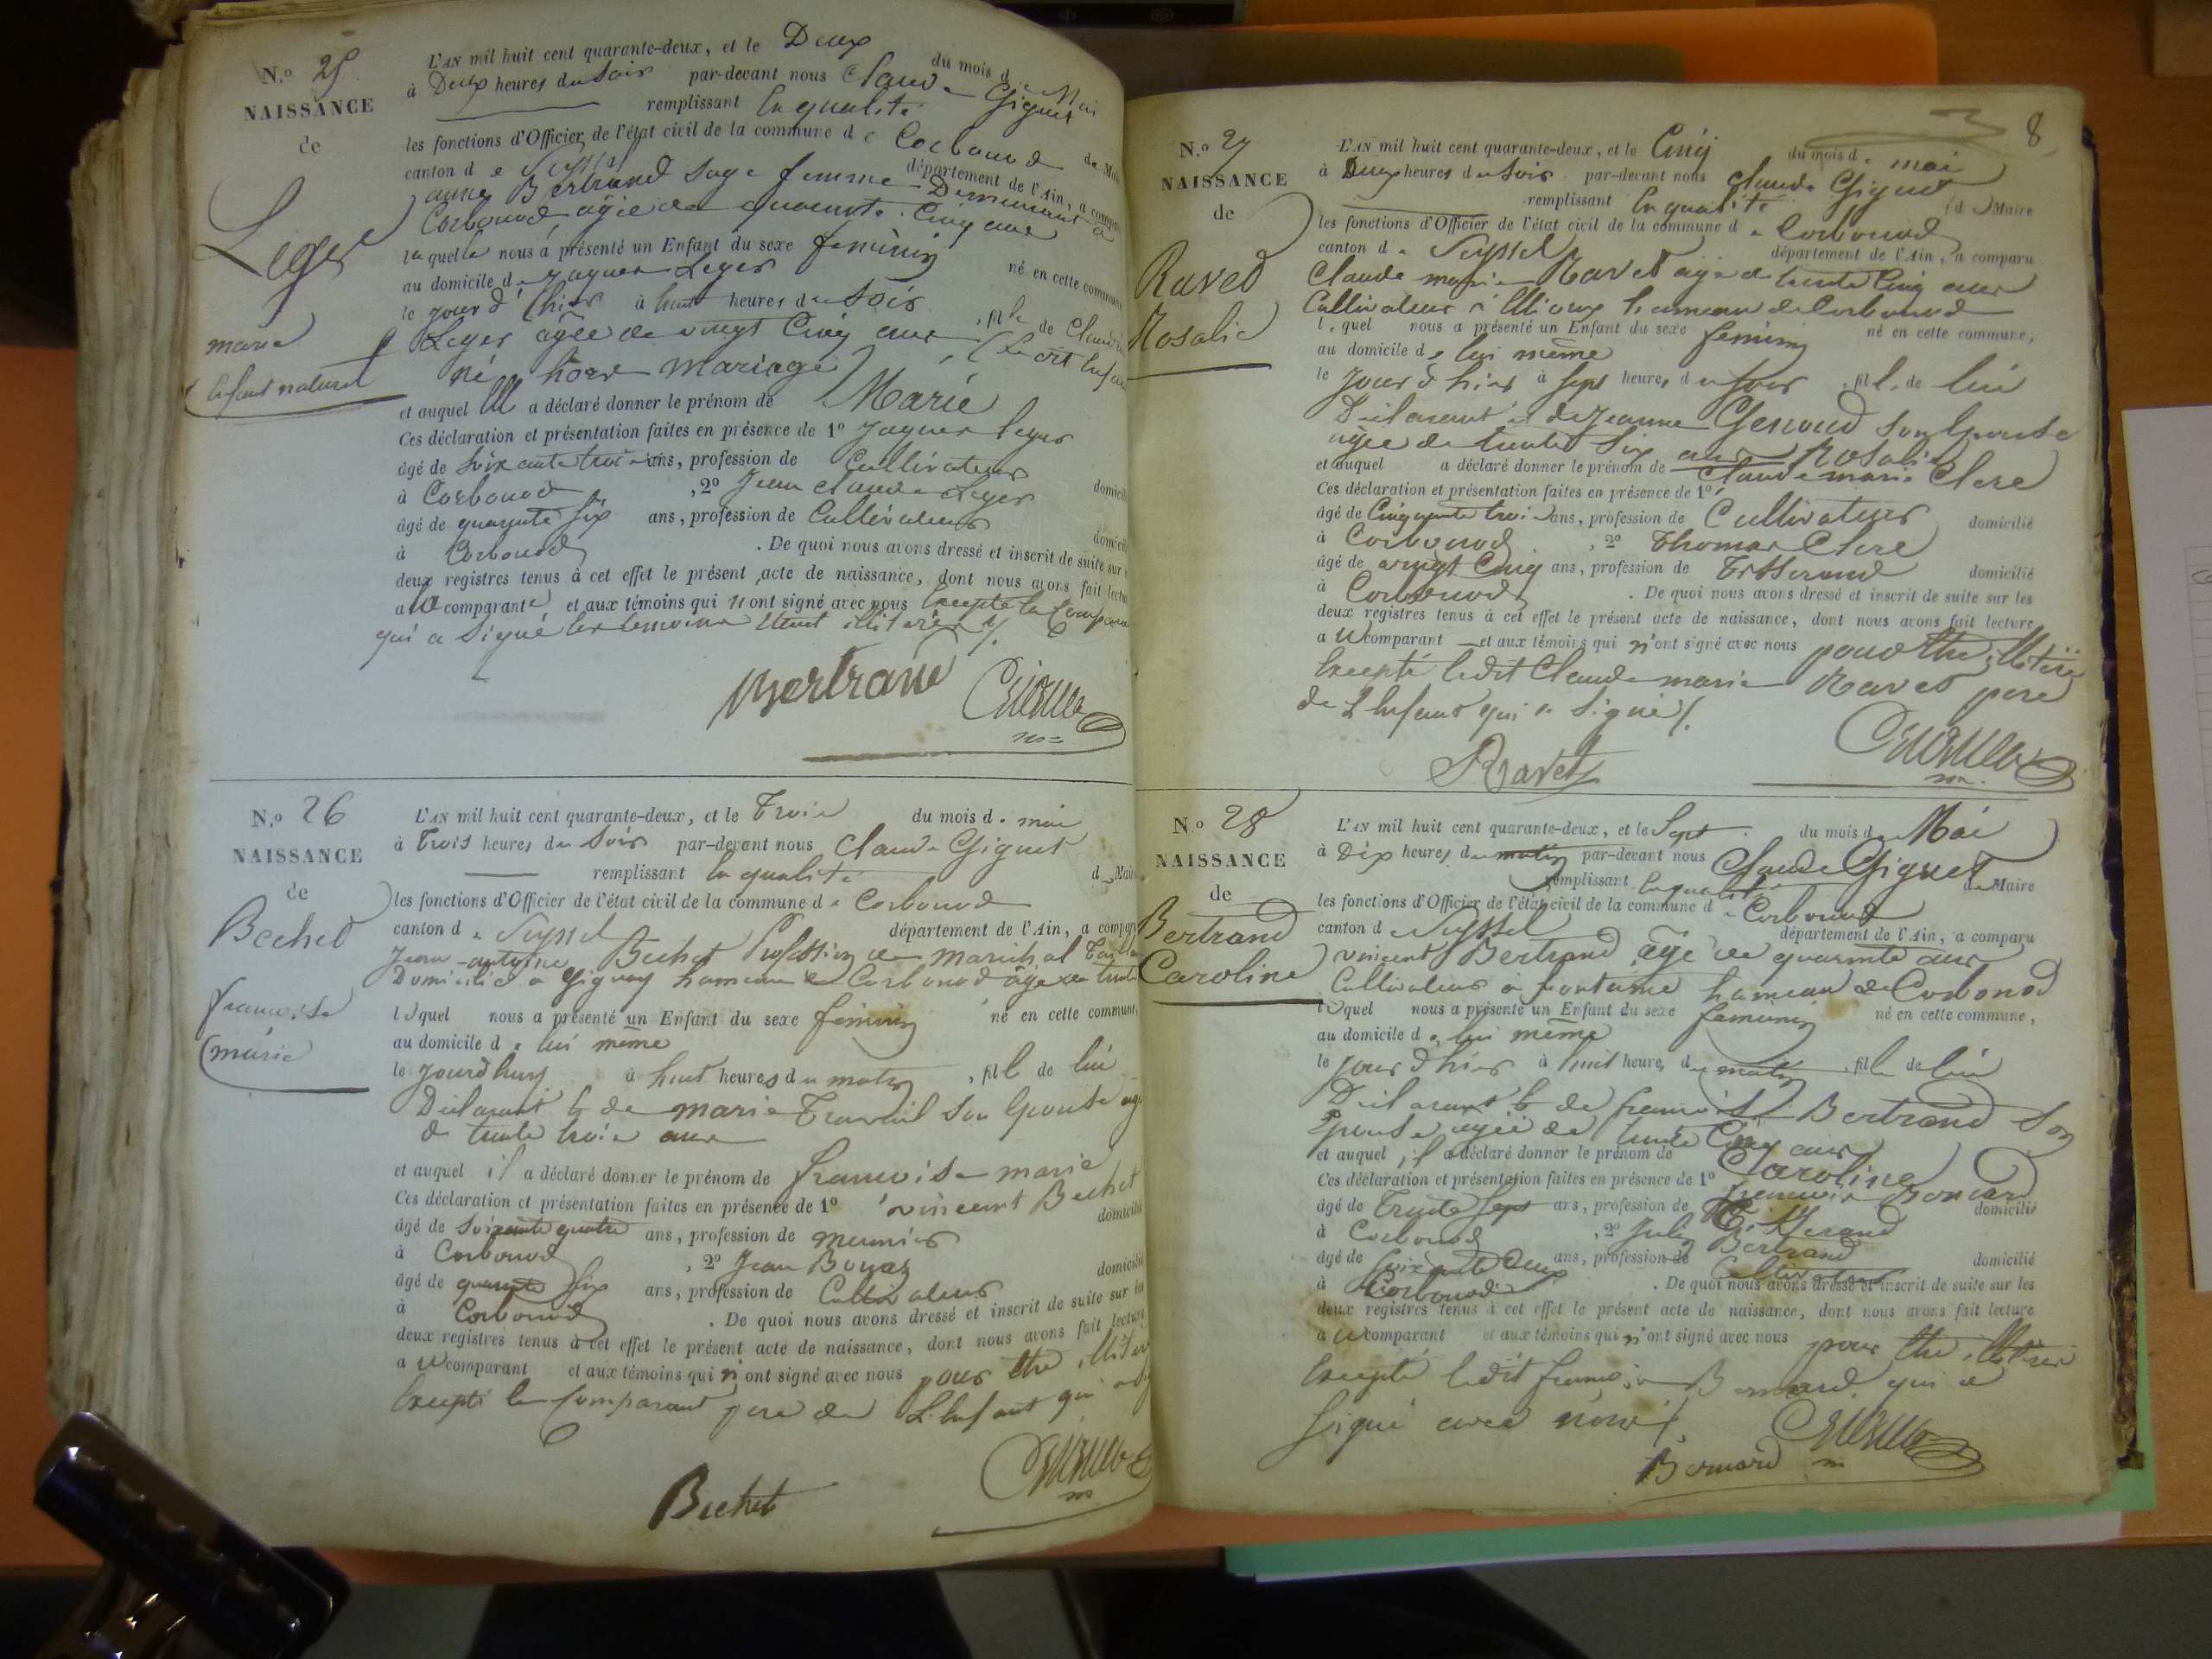 N.o 25
NAISSANCE
de
Leger
marie
Enfant naturel
L'AN mil huit cent quarante-deux, et le Deux du mois d e Mai
à Deux heures du Soir par-devant nous Claude Giguet
remplissant la qualité
les fonctions d'Officier de l'état civil de la commune d e Corbonod de Mai
canton d e Seyssel département de l'Ain, a compa
anne Bertrand Sage femme Demeurant a
Corbonod agée de quarente Cinq ans
laquelle nous a présenté un Enfant du sexe feminin né en cette commun
au domicile de Jaques Leger
le jour d'hier à huit heures du Soir , fille de Claudi
Leger agée de vingt Cinq ans , (le dit Enfan
né hors mariage)
et auquel Ell a déclaré donner le prénom de Marie
Ces déclaration et présentation faites en présence de 1o Jaques Leger
âgé de Soixante trois ans, profession de Cultivateur
à Corbonod , 2o Jean Claude Leger domicil
âgé de quarante Six ans, profession de Cultivateur
à Corbonod . De quoi nous avons dressé et inscrit de suite sur domici
deux registres tenus à cet effet le présent acte de naissance, dont nous avons fait lectu
a la comparante et aux témoins qui n'ont signé avec nous Excepté la Compara
qui a Signé les temoins Etant illiterés /.
Bertrand Giguet
N.o 26
NAISSANCE
de
Bechet
francoise
marie
L'AN mil huit cent quarante-deux, et le Trois du mois d e mai
à Trois heures du Soir par-devant nous Claude Giguet
remplissant la qualité de Mair
les fonctions d'Officier de l'état civil de la commune d e Corbonod
canton d e Seyssel département de l'Ain, a compar
Jean-antoine Bechet Profession de marichal
Domicilié a Gignay hameau de Corbonod âge de trente
lequel nous a présenté un Enfant du sexe féminin né en cette commune,
au domicile d e lui même
le jourdhuy à huit heures du matin , fille de lui
Déclarant & de marie Travail Son Epouse agé
de trente trois ans
et auquel il a déclaré donner le prénom de francoise marie
Ces déclaration et présentation faites en présence de 1o vincent Bechet
âgé de soixante quatre ans, profession de meunier domicilié
à Corbonod , 2o Jean Bovaz
âgé de quarente Six ans, profession de Cultivateur domicilié
à Corbonod . De quoi nous avons dressé et inscrit de suite sur les
deux registres tenus à cet effet le présent acte de naissance, dont nous avons fait lecture
a u comparant et aux témoins qui n'ont signé avec nous pour Etre illitéré
Excepté le Comparant pere de L'Enfant qui a
Bechet Giguet
8
N.o 27
NAISSANCE
de
Ravet
Rosalie
L'AN mil huit cent quarante-deux, et le Cinq du mois d e mai
à Deux heures du Soir par-devant nous Claude Giguet
remplissant la qualité de Maire
les fonctions d'Officier de l'état civil de la commune d e Corbonod
canton d e Seyssel département de l'Ain, a comparu
Claude marie Ravet agé de trente Cinq ans
Cultivateur à Etioux hameau de Corbonod
lequel nous a présenté un Enfant du sexe feminin né en cette commune,
au domicile d e lui même
le Jour d'hier à Sept heures du Soir , fille de lui
Déclarant et de Jeanne Genoud son Epouse
agée de trente Six ans
et auquel a déclaré donner le prénom de Rosalie
Ces déclaration et présentation faites en présence de 1o Claude marie Clerc
âgé de Cinquante trois ans, profession de Cultivateur domicilié
à Corbonod , 2o Thomas Clerc
âgé de vingt Cinq ans, profession de Tisserand domicilié
à Corbonod . De quoi nous avons dressé et inscrit de suite sur les
deux registres tenus à cet effet le présent acte de naissance, dont nous avons fait lecture
a u comparant et aux témoins qui n'ont signé avec nous pour Etre illitéré
Excepté ledit Claude marie Ravet pere
de L'Enfant qui a Signé /.
Ravet Giguet
N.o 28
NAISSANCE
de
Bertrand
Caroline
L'AN mil huit cent quarante-deux, et le Sept du mois de Mai
à Dix heures du matin par-devant nous Claude Giguet
remplissant la qualité de Maire
les fonctions d'Officier de l'état civil de la commune d e Corbonod
canton d e Seyssel département de l'Ain, a comparu
vincent Bertrand agé de quarente ans
Cultivateur a fontaine hameau de Corbonod
lequel nous a présenté un Enfant du sexe feminin né en cette commune,
au domicile d e lui même
le jour d'hier à huit heures du matin , fille de lui
Déclarant & de francoise Bertrand Son
Epouse agée de trente Cinq ans
et auquel il a déclaré donner le prénom de Caroline
Ces déclaration et présentation faites en présence de 1o francois Bernard
âgé de Trente Sept ans, profession de Tisserand domicilié
à Corbonod , 2o Julien Bertrand
âgé de Soixante Deux ans, profession de Cultivateur domicilié
à Corbonod . De quoi nous avons dressé et inscrit de suite sur les
deux registres tenus à cet effet le présent acte de naissance, dont nous avons fait lecture
a u comparant et aux témoins qui n'ont signé avec nous pour Etre illitéré
Excepté ledit francois Bernard qui a
Signé avec nous /.
Bernard Giguet